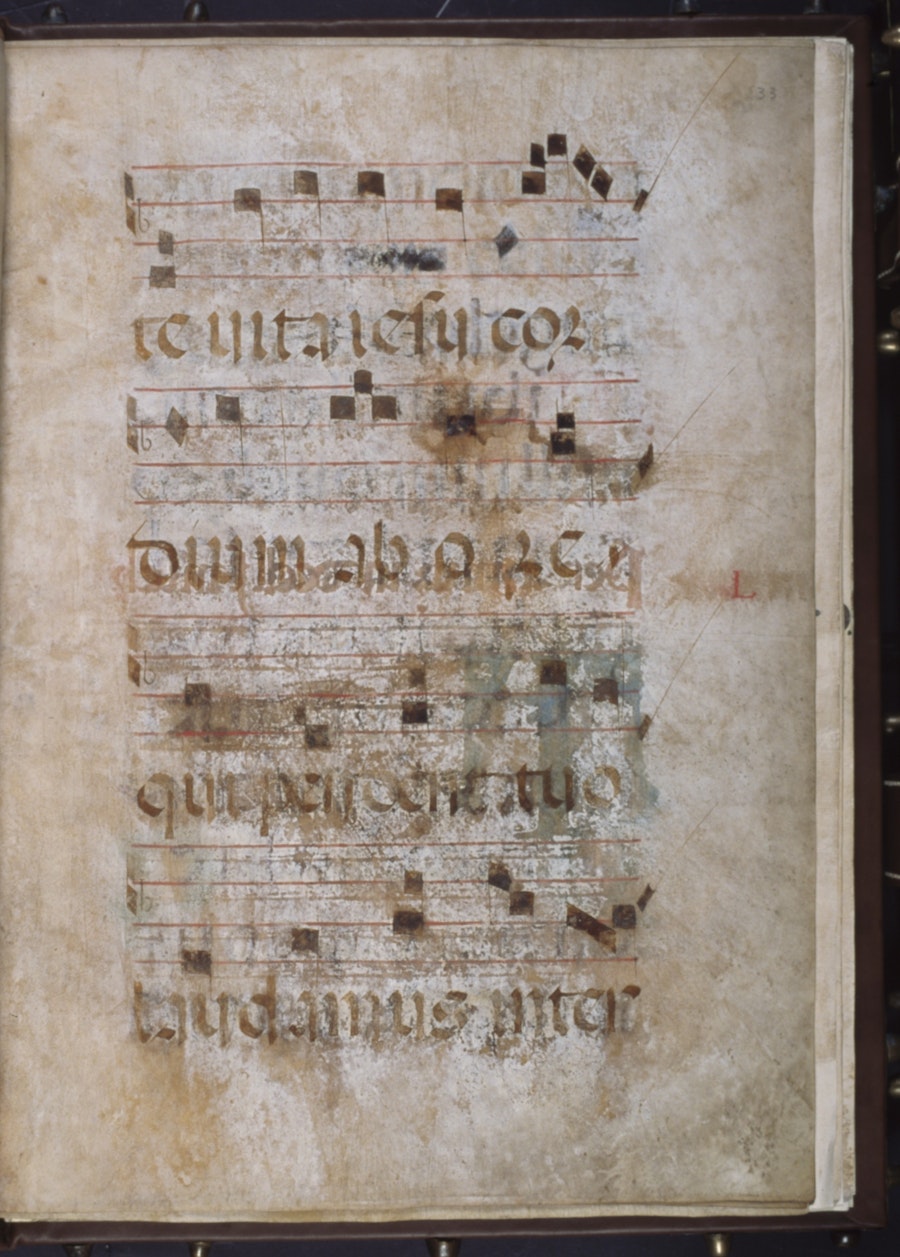 33
te uita iesu cor
dium ab ore
L
qui pendent tuo
laudamus inter